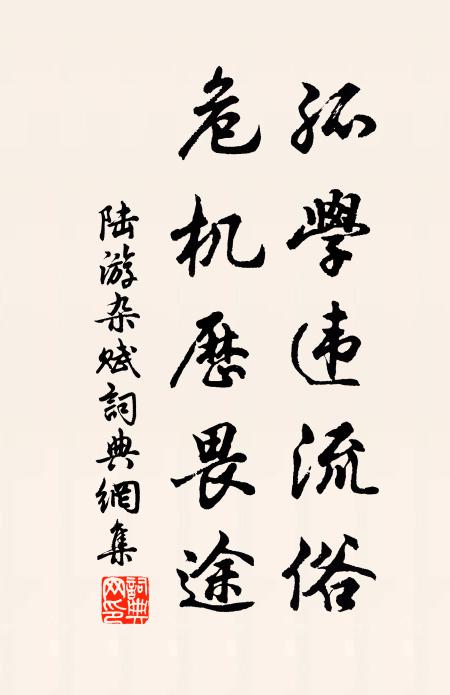 孤學违流俗
危机歷畏途
陆游杂赋詞典網集
詞典网印